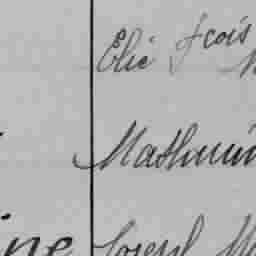 Elie fcois
Mathurin
ine Joseph